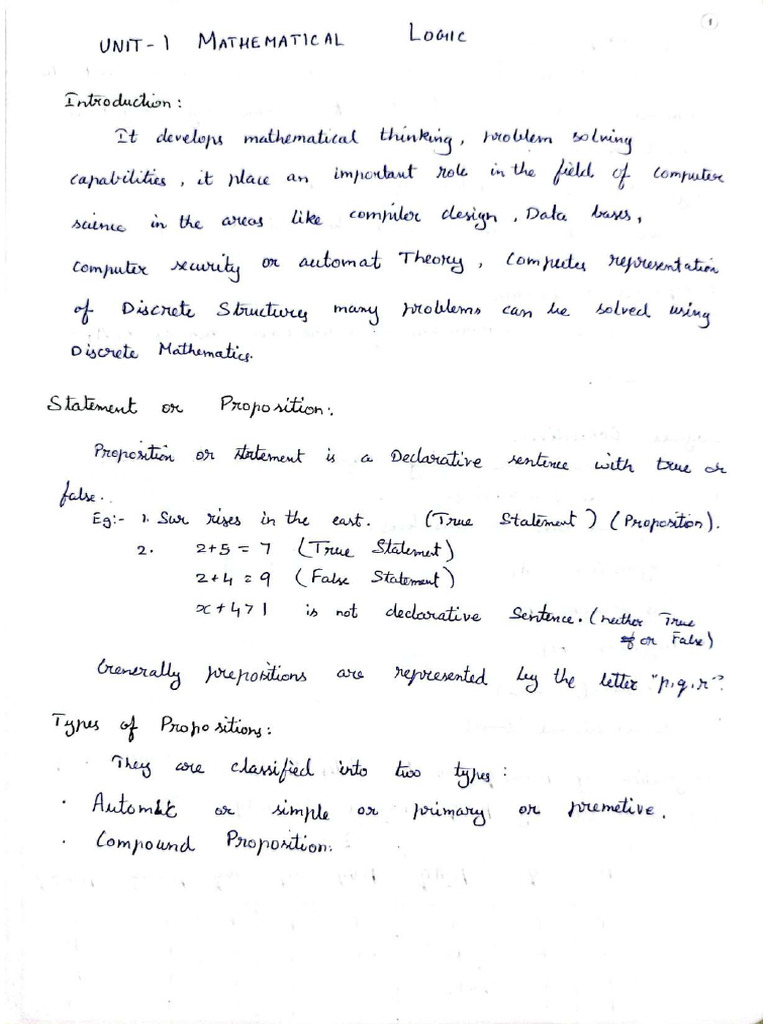 1
UNIT-1 MATHEMATICAL LOGIC
Introduction:
It develops mathematical thinking, problem solving
capabilities, it place an important role in the field of computer
science in the areas like compiler design, Data bases,
computer security or automat Theory, Computes representation
of Discrete Structures many problems can be solved using
Discrete Mathematics.
Statement or Proposition:
Proposition or statement is a Declarative sentence with true or
false.
Eg:- 1. Sun rises in the east. (True Statement) (Proposition).
2. 2+5 = 7 (True Statement)
2+4 = 9 (False Statement)
x+4>1 is not declarative Sentence. (neither True
or False)
Generally prepositions are represented by the letter "p,q,r".
Types of Propositions:
They are classified into two types:
· Automic or simple or primary or premetive.
· Compound Proposition.